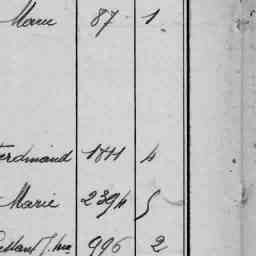 Marie 87 1
Ferdinand 1811 4
Marie 2394 5
996 2